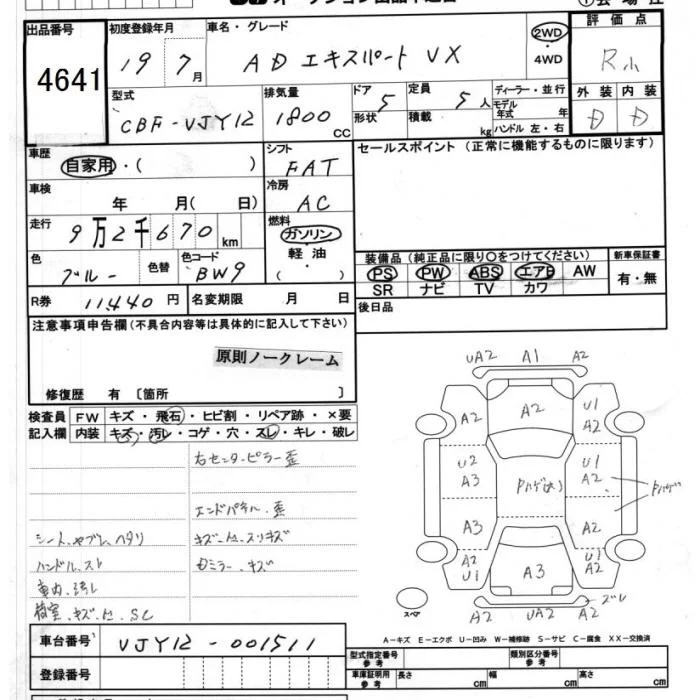 出品番号
4641
初度登録年月
19 7月
車名・グレード
ADエキスパート VX
2WD
・
4WD
評価点
R小
型式
CBF-VJY12
排気量
1800
CC
ドア
5
形状
定員
5人
積載
kg
ディーラー・並行
モデル
年式 年
ハンドル 左・右
外装 内装
D D
車歴
自家用・( )
シフト
FAT
セールスポイント (正常に機能するものに限ります)
車検
年 月( 日)
冷房
AC
走行
9万2千670km
燃料
ガソリン・
軽油・
( )
色
ブルー
色替
色コード
BW9
装備品 (純正品に限り○をつけてください)
新車保証書
PS PW ABS エアB AW
SR ナビ TV カワ
有・無
R券
11,440円
名変期限 月 日
後日品
注意事項申告欄(不具合内容等は具体的に記入して下さい)
原則ノークレーム
修復歴 有 〔箇所 〕
検査員
記入欄
FW キズ・飛石・ヒビ割・リペア跡・×要
内装 キズ・汚レ・コゲ・穴・スレ・キレ・破レ
右センターピラー歪
エンドパネル歪
シート、ヤブレ、ヘタリ
キズ・凹、スリキズ
ハンドル、スレ
Dミラー、キズ
車内、汚レ
荷室、キズ・凹、SC
UA2 A1 A2
A2 A2 U1 A2
U2 A3 Pハゲ(大) U1 A2 Pハゲ
A3 A2
A2 U1 A3 U1 A2
A2 UA2 A2 ズレ
スペア
A-キズ E-エクボ U-凹み W-補修跡 S-サビ C-腐食 XX-交換済
車台番号
VJY12-001511
登録番号
型式指定番号
参考
類別区分番号
参考
車庫証明用
参考
長さ cm 幅 cm 高さ cm